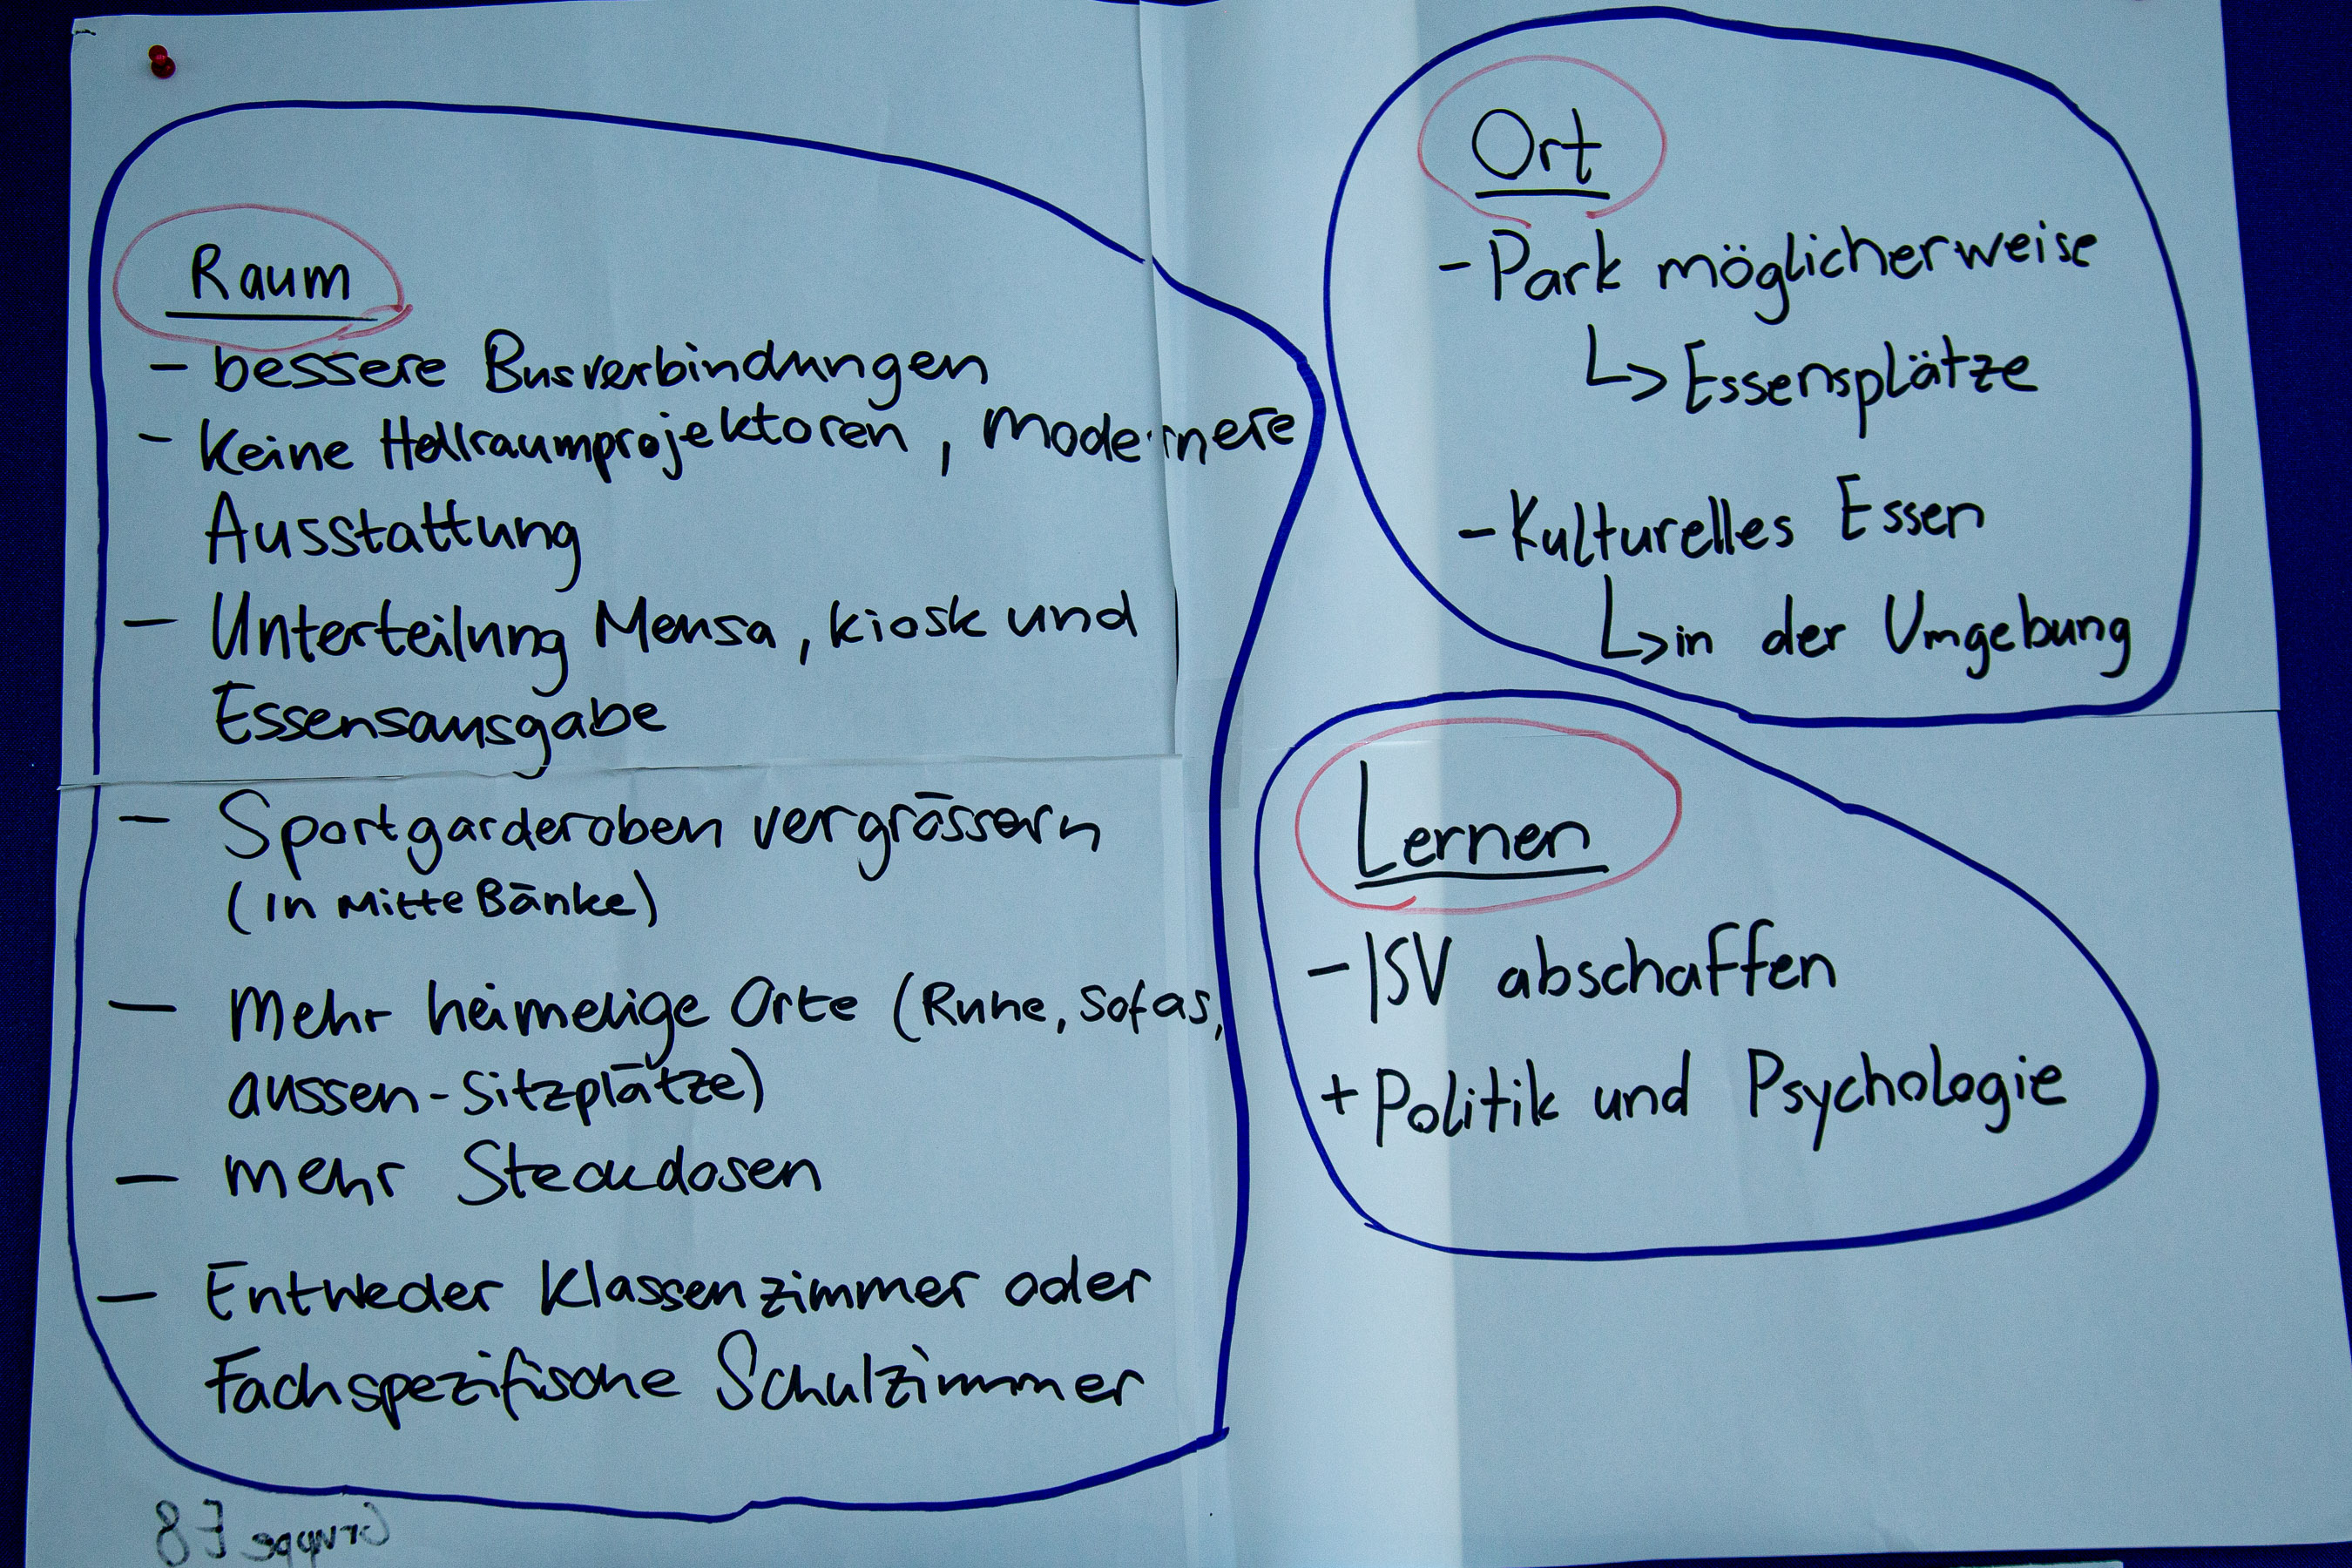 Raum
- bessere Busverbindungen
- Keine Hellraumprojektoren, modernere
Ausstattung
- Unterteilung Mensa, Kiosk und
Essensausgabe
- Sportgarderoben vergrössern
(in Mitte Bänke)
- Mehr heimelige Orte (Ruhe, Sofas,
aussen-Sitzplätze)
- mehr Steckdosen
- Entweder Klassenzimmer oder
Fachspezifische Schulzimmer
Gruppe E8
Ort
- Park möglicherweise
↳ Essensplätze
- Kulturelles Essen
↳ in der Umgebung
Lernen
- ISV abschaffen
+ Politik und Psychologie